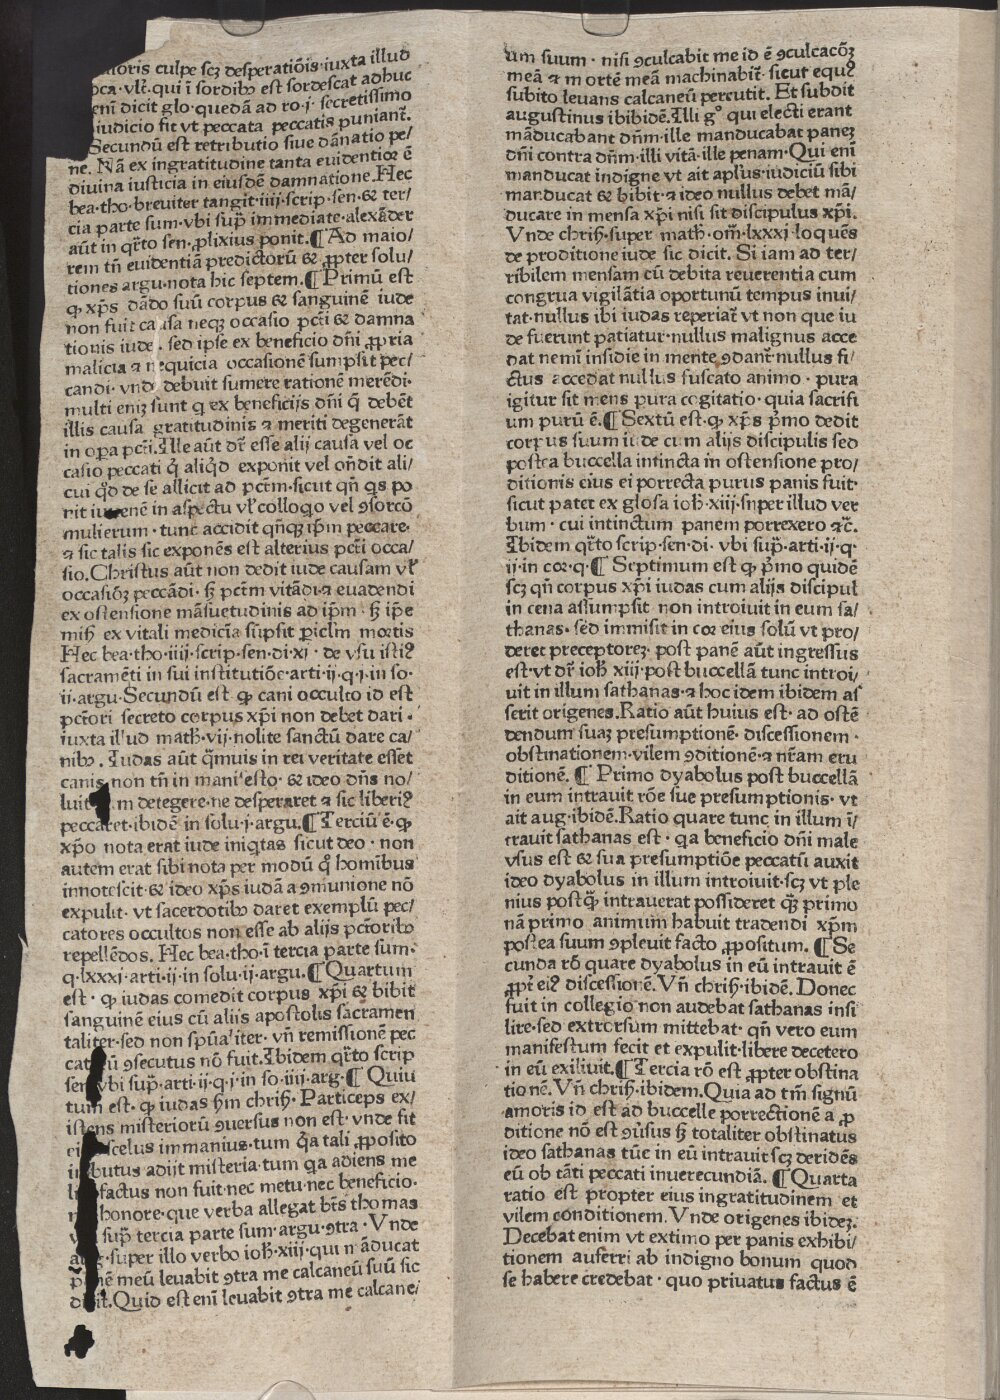 culpe scꝫ desperatiõis·iuxta illud
vlt̃·qui ī sordibꝫ est sordescat adhuc
enī dicit glo·quedā ad ro·j· secretissimo
iudicio fit vt peccata peccatis puniant̃.
Secundū est retributio siue dānatio pe/
ne. Nā ex ingratitudine tanta euidentior ē
diuina iusticia in eiusdē damnatione. Hec
bea·tho·breuiter tangit·iiij·scrip·sen·& ter/
cia parte sum·vbi sup̃ immediate·alexāder
aūt in qr̃to sen·ꝓlixius ponit. ¶ Ad maio/
rem tñ euidentiā predictorū & ꝓpter solu/
tiones argu·nota hic septem. ¶ Primū est
ꝙ xp̃s dādo suū corpus & sanguinē iude
non fuit causa neqꝫ occasio pctī & damna
tionis iude· sed ipse ex beneficio dñi ꝓpria
malicia ⁊ nequicia occasionē sumpsit pec/
candi· vnde debuit sumere rationē merēdi·
multi eniꝫ sunt q̇ ex beneficijs dñi q̃ debēt
illis causa gratitudinis ⁊ meriti degenerāt
in oꝑa pctī. Ille aūt dr̃ esse alij causa vel oc
casio peccati q̇ aliq̇d exponit vel oñdit ali/
cui q̇d de se allicit ad pctm̃·sicut qñ q̇s po
nit iuuenē in aspectu vl̃ colloq̇o vel ꝯsorcō
mulierum· tunc accidit qñqꝫ ip̃m peccare·
⁊ sic talis sic exponēs est alterius pctī occa/
sio. Christus aūt non dedit iude causam vl̃
occasioꝫ peccādi· sꝫ pctm̃ vitādi ⁊ euadendi
ex ostensione māsuetudinis ad ip̃m· sꝫ ip̃e
misꝫ ex vitali medicīa sūpsit ꝑiclm̃ mortis
Hec bea·tho·iiij·scrip·sen·di·xj· de vsu istiꝰ
sacramēti in sui institutiōe·arti·ij·q·j·in so·
ij·argu·Secundū est ꝙ cani occulto id est
pctōri secreto corpus xp̃i non debet dari·
iuxta illud math̃·vij·nolite sanctū dare ca/
nibꝫ. Iudas aūt q̃muis in rei veritate esset
canis non tñ in manifesto· & ideo dñs no/
luit detegere·ne desperaret ⁊ sic liberiꝰ
peccaret·ibidē in solu·j·argu. ¶ Terciū ē·ꝙ
xp̃o nota erat iude iniq̇tas sicut deo· non
autem erat sibi nota per modū q̊ homībus
innotescit·& ideo xp̃s iudā a ꝯmunione nō
expulit· vt sacerdotibꝫ daret exemplū pec/
catores occultos non esse ab alijs pctōribꝫ
repellēdos. Hec bea·tho·ī tercia parte sum·
q·lxxxj·arti·ij·in solu·ij·argu. ¶ Quartum
est· ꝙ iudas comedit corpus xp̃i & bibit
sanguinē eius cū aliis apostolis sacramen
taliter·sed non spūaliter· vñ remissionē pec
catoꝝ ꝯsecutus nō fuit. Ibidem qr̃to scrip
sen vbi sup̃·arti·ij·q·j·in so·iiij·arg· ¶ Quiu
tum est· ꝙ iudas sꝫm chrisꝫ· Particeps ex/
istens misteriorū ꝯuersus non est· vnde fit
scelus immanius·tum q̇a tali ꝓposito
butus adijt misteria·tum q̇a adiens me
factus non fuit·nec metu·nec beneficio·
honore·que verba allegat bt̃s thomas
sup̃ tercia parte sum·argu·ꝯtra· Vnde
aug·super illo verbo ioh̃·xiij·qui māducat
panē meū leuabit ꝯtra me calcaneū suū sic
dicit. Quid est enī leuabit ꝯtra me calcane/
um suum· nisi ꝯculcabit me id ē ꝯculcacōꝫ
meā ⁊ mortē meā machinabit̃· sicut equꝰ
subito leuans calcaneū percutit. Et subdit
augustinus ibibidē. Illi gͦ qui electi erant
māducabant dñm·ille manducabat paneꝫ
dñi contra dñm·illi vitā·ille penam·Qui enī
manducat indigne vt ait apl̃us·iudiciū sibi
manducat & bibit· ⁊ ideo nullus debet mā/
ducare in mensa xp̃i nisi sit discipulus xp̃i.
Vnde chrisꝫ·super math̃·om̃·lxxxj loquēs
de proditione iude sic dicit. Si iam ad ter/
ribilem mensam cū debita reuerentia cum
congrua vigilātia oportunū tempus inui/
tat·nullus ibi iudas reperiat̃ vt non que iu
de fuerunt patiatur·nullus malignus acce
dat nemī insidie in mente ꝯdant̃·nullus fi/
ctus accedat nullus fuscato animo· pura
igitur sit mens pura cogitatio· quia sacrifi
um purū ē. ¶ Sextū est·ꝙ xp̃s p̃mo dedit
corpus suum iude cum alijs discipulis sed
postea buccella intincta in ostensione pro/
ditionis eius ei porrecta purus panis fuit·
sicut patet ex glosa ioh̃·xiij·super illud ver
bum· cui intinctum panem porrexero ⁊c̃.
Ibidem qr̃to scrip·sen·di· vbi sup̃·arti·ij·q·
ij·in cor·q· ¶ Septimum est ꝙ p̃mo quidē
scꝫ qñ corpus xp̃i iudas cum alijs discipul
in cena assumpsit non introiuit in eum sa/
thanas· sed immisit in cor eius solū vt pro/
deret preceptoreꝫ· post panē aūt ingressus
est·vt dr̃ ioh̃ xiij·post buccellā tunc introi/
uit in illum sathanas·⁊ hoc idem ibidem as
serit origenes. Ratio aūt huius est· ad ostē
dendum suaꝫ presumptionē· discessionem·
obstinationem·vilem ꝯditionē·⁊ nr̃am eru
ditionē. ¶ Primo dyabolus post buccellā
in eum intrauit rōe sue presumptionis· vt
ait aug·ibidē. Ratio quare tunc in illum ī/
trauit sathanas est· q̇a beneficio dñi male
vsus est & sua presumptiōe peccatū auxit
ideo dyabolus in illum introiuit·scꝫ vt ple
nius postq̃ intrauerat possideret q̃ꝫ primo
nā primo animum habuit tradendi xp̃m
postea suum ꝯpleuit facto ꝓpositum. ¶ Se
cunda rō quare dyabolus in eū intrauit ē
ꝓpt̃ eiꝰ discessionē. Vñ chrisꝫ·ibidē. Donec
fuit in collegio non audebat sathanas insi
lire·sed extrorsum mittebat· qñ vero eum
manifestum fecit et expulit·libere decetero
in eū exiliuit. ¶ Tercia rō est ꝓpter obstina
tionē. Vñ chrisꝫ·ibidem. Quia ad tm̃ signū
amoris id est ad buccelle porrectionē a ꝓ
ditione nō est ꝯūsus sꝫ totaliter obstinatus
ideo sathanas tūc in eū intrauit scꝫ deridēs
eū ob tāti peccati inuerecundiā. ¶ Quarta
ratio est propter eius ingratitudinem et
vilem conditionem. Vnde origenes ibideꝫ.
Decebat enim vt extimo per panis exhibi/
tionem auferri ab indigno bonum quod
se habere credebat· quo priuatus factus ē